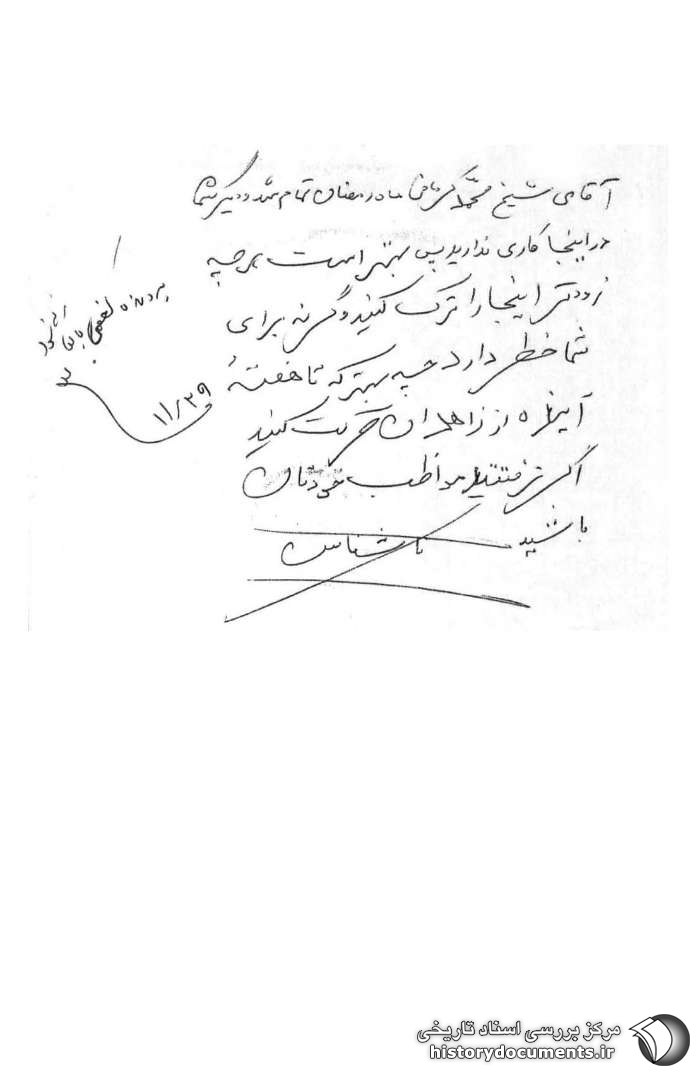 آقای شیخ محمد کرمانی ماه رمضان تمام شد و دیگر شما
در اینجا کاری ندارید پس بهتر است هر چه
زودتر اینجا را ترک کنید و گرنه برای
شما خطر دارد چه بهتر که تا هفتهٔ
آینده از زاهدان حرکت کنید
اگر نرفتید مواظب خودتان
باشید
ناشناس
۱۱/۲۹
مرکز بررسی اسناد تاریخی
historydocuments.ir